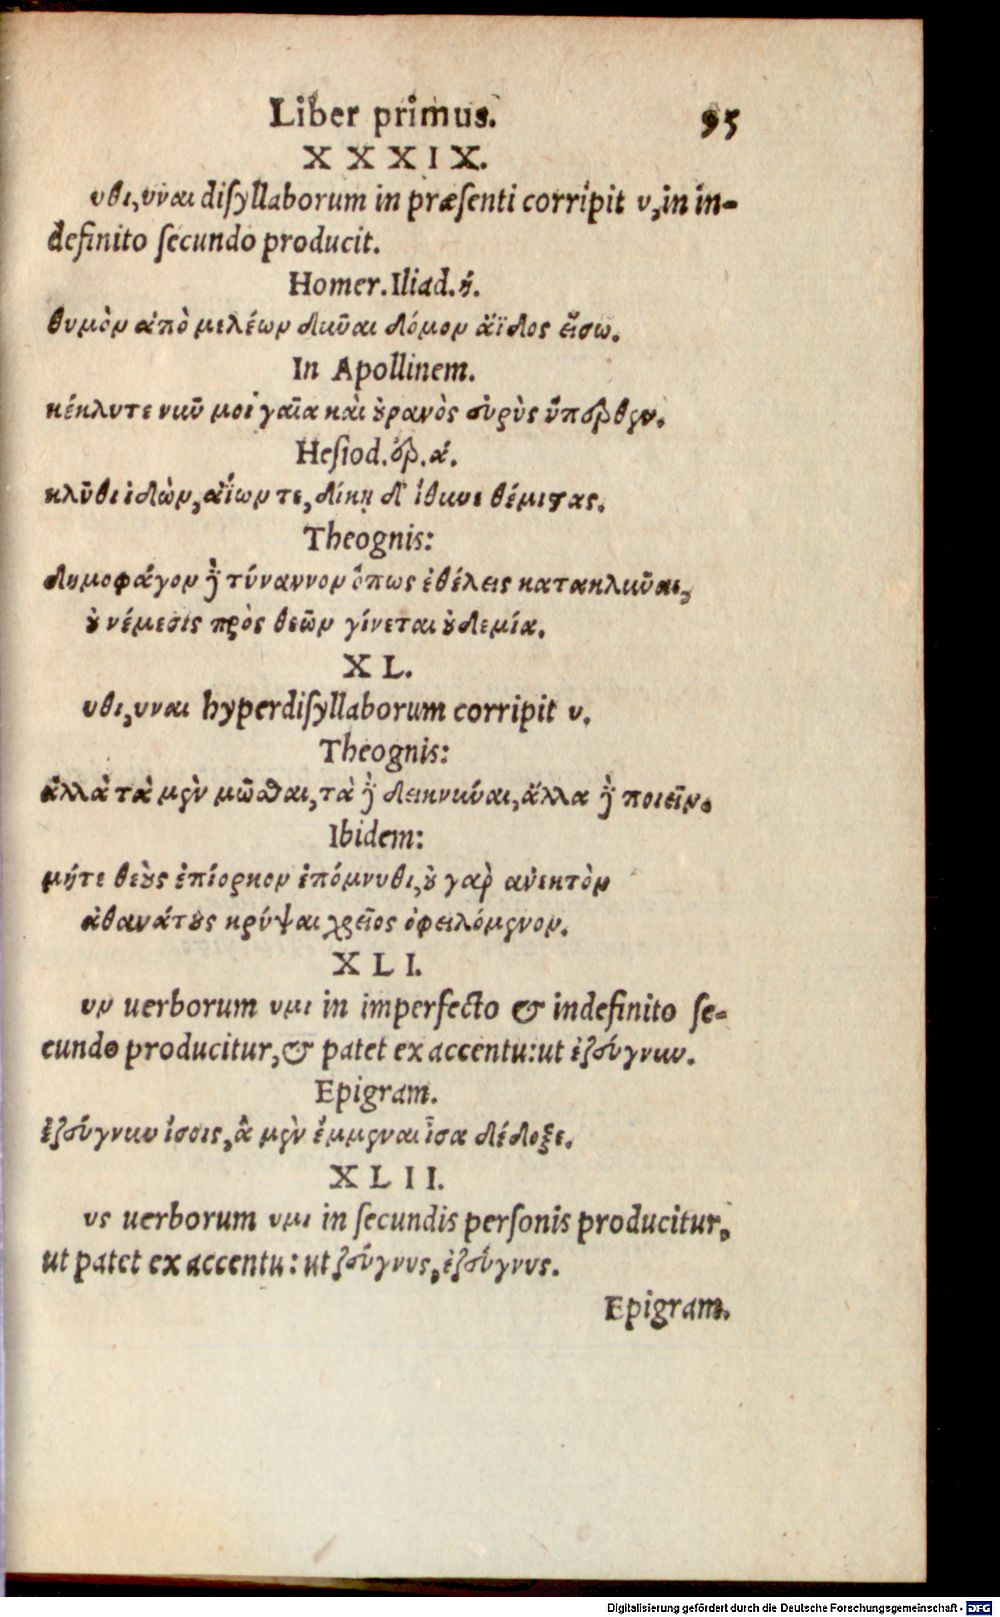 Liber primus. 95
XXXIX.
υθι, υναι disyllaborum in præsenti corripit υ, in in-
definito secundo producit.
Homer. Iliad. ή.
θυμὸν ἀπὸ μελέων δῦναι δόμον ἄϊδος εἴσω.
In Apollinem.
κέκλυτε νῦν μοι γαῖα καὶ οὐρανὸς εὐρὺς ὕπερθεν.
Hesiod. ἔρ. ά.
κλῦθι ἰδὼν, ἀΐων τε, δίκῃ δ' ἴθυνε θέμιστας.
Theognis:
δημοφάγον δὲ τύραννον ὅπως ἐθέλεις κατακλῦναι,
οὐ νέμεσις πρὸς θεῶν γίνεται οὐδεμία.
XL.
υθι, υναι hyperdisyllaborum corripit υ.
Theognis:
ἀλλὰ τὰ μὲν μῶσθαι, τὰ δὲ δεικνύναι, ἄλλα δὲ ποιεῖν.
Ibidem:
μήτε θεοὺς ἐπίορκον ἐπόμνυθι, οὐ γὰρ ἀνεκτὸν
ἀθανάτους κρύψαι χρεῖος ὀφειλόμενον.
XLI.
υν uerborum υμι in imperfecto & indefinito se-
cundo producitur, & patet ex accentu: ut ἐζεύγνυν.
Epigram.
ἐζεύγνυν ἴσοις, ἃ μὲν ἔμμεναι ἶσα δέδοξε.
XLII.
υς uerborum υμι in secundis personis producitur,
ut patet ex accentu: ut ζεύγνυς, ἐζεύγνυς.
Epigram.
Digitalisierung gefördert durch die Deutsche Forschungsgemeinschaft - DFG